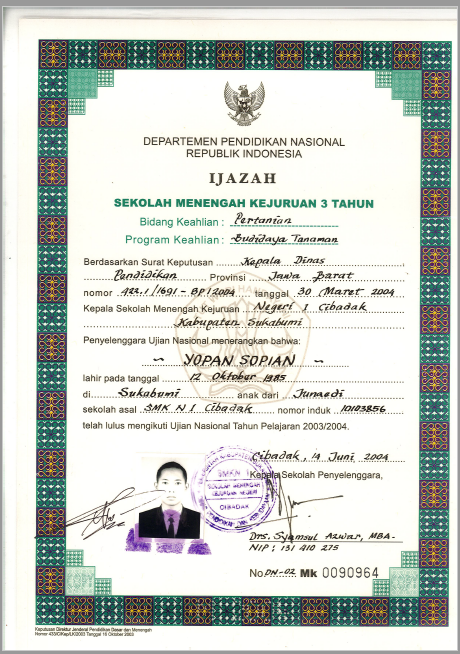 DEPARTEMEN PENDIDIKAN NASIONAL
REPUBLIK INDONESIA
IJAZAH
SEKOLAH MENENGAH KEJURUAN 3 TAHUN
Bidang Keahlian : Pertanian
Program Keahlian : Budidaya Tanaman
Berdasarkan Surat Keputusan Kepala Dinas
Pendidikan Provinsi Jawa Barat
nomor 422.1/1691-BP/2004 tanggal 30 Maret 2004
Kepala Sekolah Menengah Kejuruan Negeri 1 Cibadak
Kabupaten Sukabumi
Penyelenggara Ujian Nasional menerangkan bahwa:
~ YOPAN SOPIAN ~
lahir pada tanggal 12 Oktober 1985
di Sukabumi anak dari Junaedi
sekolah asal SMK N 1 Cibadak nomor induk 10103856
telah lulus mengikuti Ujian Nasional Tahun Pelajaran 2003/2004.
Cibadak, 14 Juni 2004
Kepala Sekolah Penyelenggara,
SMKN 1
SEKOLAH MENENGAH
KEJURUAN NEGERI
CIBADAK
Drs. Syamsul Azwar, MBA.
NIP : 131 410 275
No DN-02 Mk 0090964
COPY
COPY
Keputusan Direktur Jenderal Pendidikan Dasar dan Menengah
Nomor 433/C/Kep/LK/2003 Tanggal 16 Oktober 2003